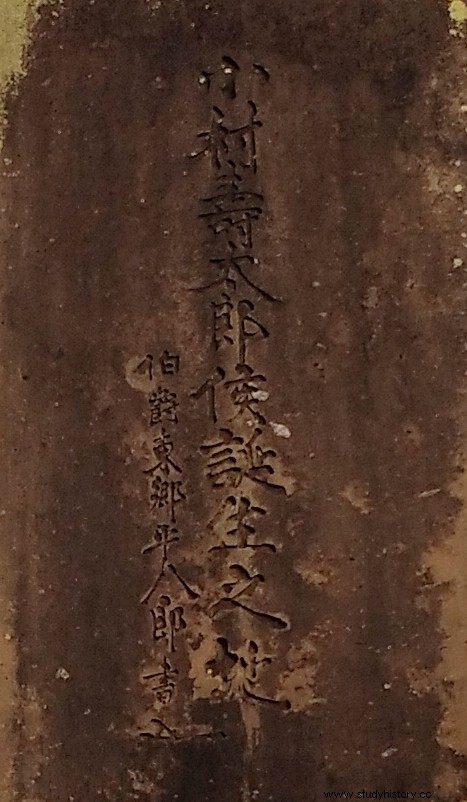 小村壽太郎侯誕生之地
伯爵東郷平八郎書
www.studyhistory.co